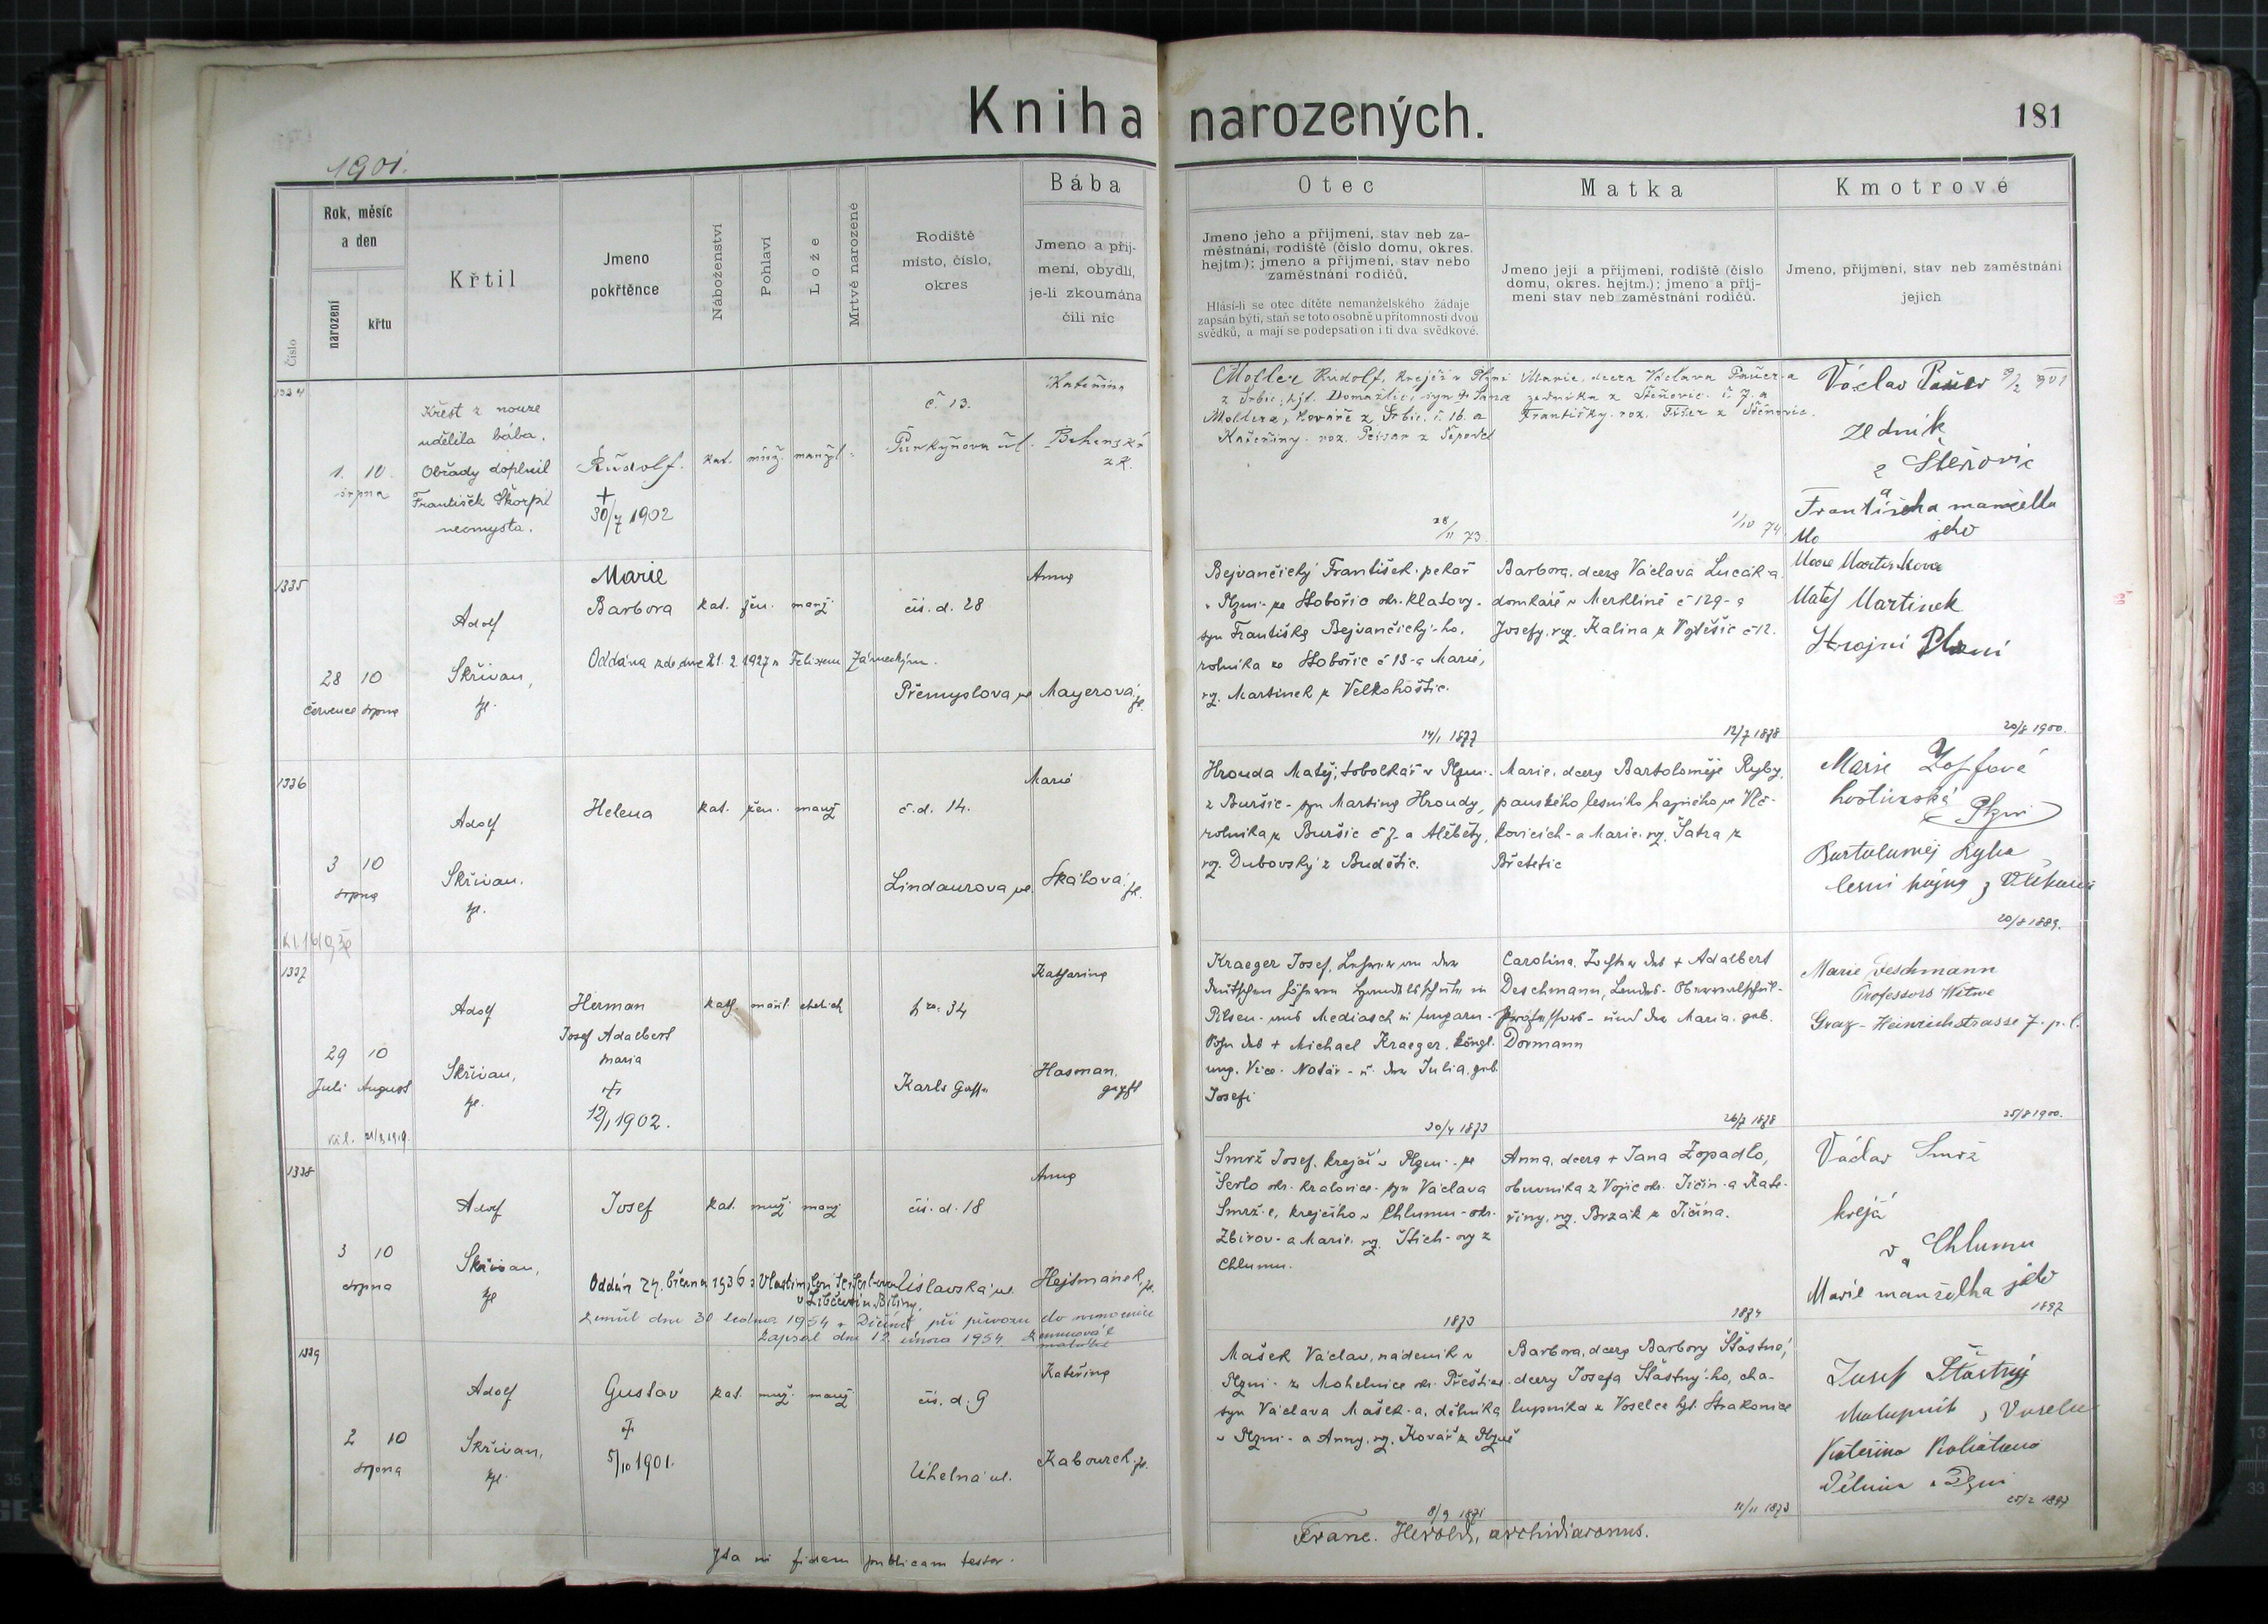 Kniha narozených.
181
1901.
Číslo
Rok, měsíc
a den
narození
křtu
Křtil
Jmeno
pokřtěnce
Náboženství
Pohlaví
Lože
Mrtvě narozené
Rodiště
místo, číslo,
okres
Bába
Jmeno a příj-
mení, obydlí,
je-li zkoumána
čili nic
Otec
Jmeno jeho a příjmení, stav neb za-
městnání, rodiště (číslo domu, okres.
hejtm.); jmeno a příjmení, stav nebo
zaměstnání rodičů.
Hlásí-li se otec dítěte nemanželského žádaje
zapsán býti, staň se toto osobně u přítomnosti dvou
svědků, a mají se podepsati on i ti dva svědkové.
Matka
Jmeno její a příjmení, rodiště (číslo
domu, okres. hejtm.); jmeno a příj-
mení stav neb zaměstnání rodičů.
Kmotrové
Jmeno, příjmení, stav neb zaměstnání
jejich
1334
1. 10.
srpna
Křest z nouze
udělila bába.
Obřady doplnil
František Škorpil
neomysta.
Rudolf.
+
30/7 1902
kat. muž. manžel.
č. 13.
Purkyňova ul.
Kateřina
Moller Rudolf, krejčí v Plzni
z Srbic, hjt. Domažlice, syn
Mollera, kováře z Srbic č. 16. a
Kateřiny roz.
28/11 73
Marie, dcera Václava Pauer-a
zedníka z Štěnovic č. 7. a
Františky roz. Fišer z Štěnovic.
1/10 74
Václav Pauer
zedník
z Štěnovic
a
Františka manželka
jeho
1335
28 10
července srpna
Adolf
Skřivan,
Marie
Barbora
Oddána zde dne 21. 2. 1927 s Felixem Zámečkým.
kat. žen. manž.
čís. d. 28
Přemyslova ul.
Anna
Mayerová,
Bejvančický František, pekař
v Plzni - ze Stobořic okr. Klatovy -
syn Františka Bejvančický-ho,
rolníka ze Stobořic č 13 - a Marie,
roz. Martinek z Velkohoštic.
14/1 1877
Barbora, dcera Václava Lucák-a
domkáře v Merklíně č 129 - a
Josefy, roz. Kalina z
12/7 1878
Matěj Martinek
Strojní Plzni
20/8 1900.
1336
3 10
srpna
Adolf
Skřivan.
Helena
kat. žen. manž
č. d. 14.
Lindaurova ul.
Marie
Skálová,
Hrouda Matěj, tobolkář v Plzni -
z Buršic - syn Martina Hroudy,
rolníka z Buršic č 7 - a Alžběty,
roz. Dubovský z Budětic.
Marie, dcera Bartoloměje Ryby,
panského lesního hajného ve Vlč-
kovicích - a Marie, roz. Šatra z
Břetetic
Marie Zopfová
hostinská
Plzni
Bartoloměj Ryba
lesní hajný z
20/8 1889.
1337
29 10
Juli August
Adolf
Skřivan,
Herman
Josef Adalbert
Maria
+
12/1 1902.
kath. männl. ehelich
Nro. 34
Karls Gasse
Katharina
Hasman,
gepft
Kraeger Josef, Lehrer an der
deutschen höheren Handelsschule in
Pilsen - aus Mediasch in Ungarn -
Sohn des + Michael Kraeger, köngl.
ung. Vice-Notär - u. der Julia, geb.
Josefi
30/4 1873
Carolina, Tochter des + Adalbert
Deschmann, Landes-Oberrealschul-
professors - und der Maria, geb.
Dormann
26/7 1878
Marie Deschmann
Professors Witwe
Graz - Heinrichstrasse 7. p. l.
25/8 1900.
1338
3 10
srpna
Adolf
Skřivan,
Josef
kat. muž. manž
čís. d. 18
Oddán 24. března 1936 s
Zemřel dne 30 ledna 1954 v Děčíně při převozu do nemocnice
Zapsal dne 12 února 1954
Anna
Hejtmánek,
Smrž Josef, krejčí v Plzni - ze
Šerlo okr. Kralovice - syn Václava
Smrž-e, krejčího v Chlumu - okr.
Zbirov - a Marie, roz. Štich-ovy z
Chlumu.
1873
Anna, dcera + Jana Zopadlo,
obuvníka z Vojic okr. Jičín - a Kate-
řiny, roz. Brzák z Jičína.
1874
Václav Smrž
krejčí
v Chlumu
a
Marie manželka jeho
1897
1339
2 10
srpna
Adolf
Skřivan,
Gustav
+
5/10 1901.
kat. muž. manž
čís. d. 9
Úhelná ul.
Kateřina
Kabourek,
Mašek Václav, nádeník v
Plzni - z Mohelnice okr. Přeštice -
syn Václava Mašek-a, dělníka
v Plzni - a Anny, roz. Kovář z Plzně
8/9 1871
Barbora, dcera Barbory Šťastné,
dcery Josefa Šťastný-ho, cha-
lupníka z Voselce hjt. Strakonice
11/11 1873
Josef Šťastný
chalupník z Voselce
Kateřina
Dělnice v Plzni
25/2 1897
Ita in fidem publicam testor.
Franc. Herold, archidiaconus.